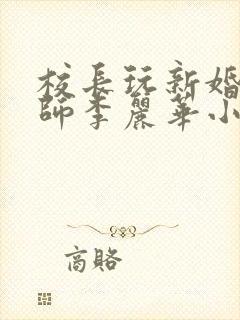 校長玩新婚
師李麗華小
商賂